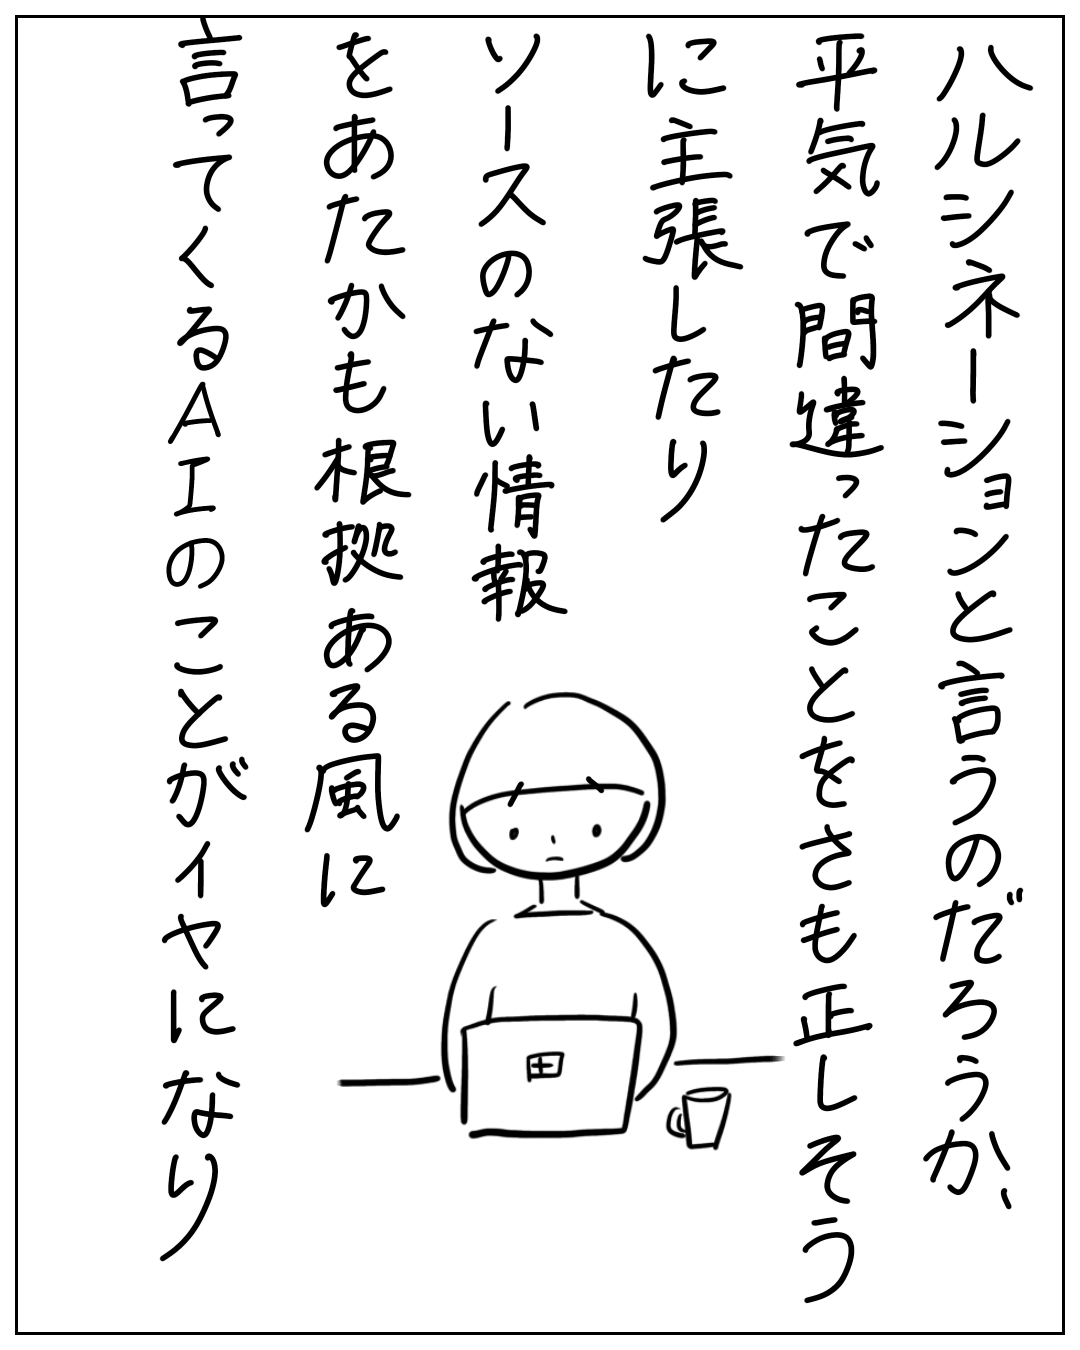 ハルシネーションと言うのだろうか、
平気で間違ったことをさも正しそう
に主張したり
ソースのない情報
をあたかも根拠ある風に
言ってくるAIのことがイヤになり